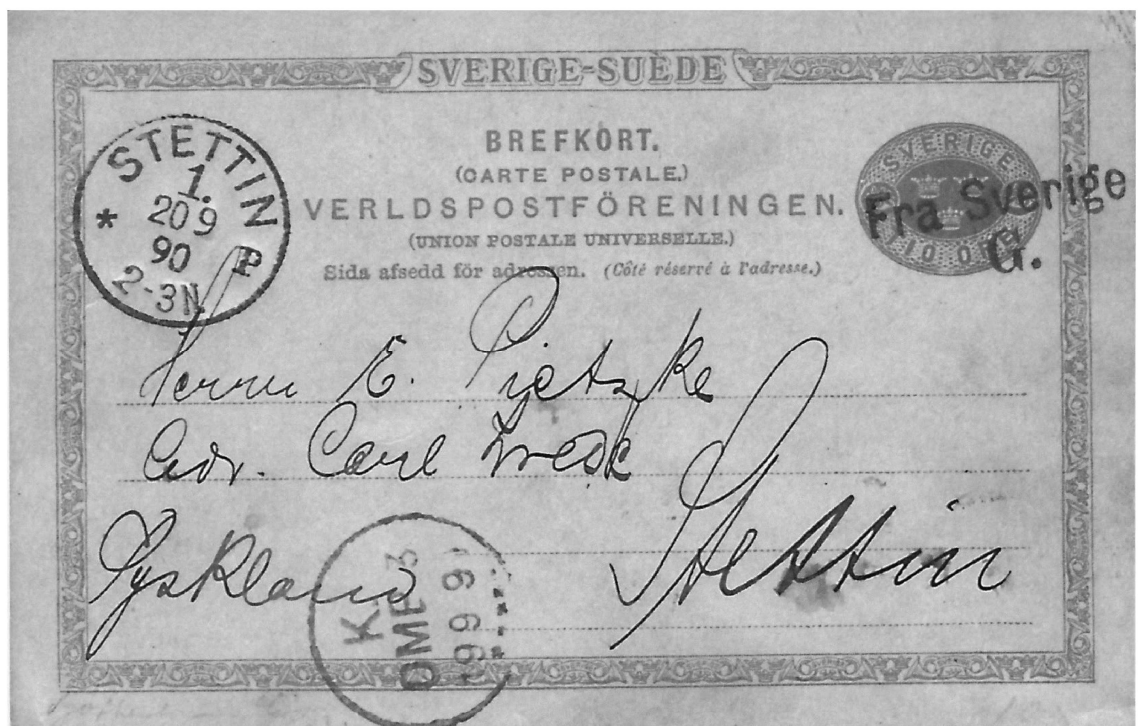 SVERIGE-SUÈDE
BREFKORT.
(CARTE POSTALE.)
VERLDSPOSTFÖRENINGEN.
(UNION POSTALE UNIVERSELLE.)
Sida afsedd för adressen. (Côté réservé à l'adresse.)
STETTIN
1.
20 9
90
2-3N.
* P
SVERIGE
10 ÖRE
Fra Sverige
G.
Herrn E. Pietzke
Adr. Carl
Stettin
Tyskland
K.
OMB 3
19 9 9